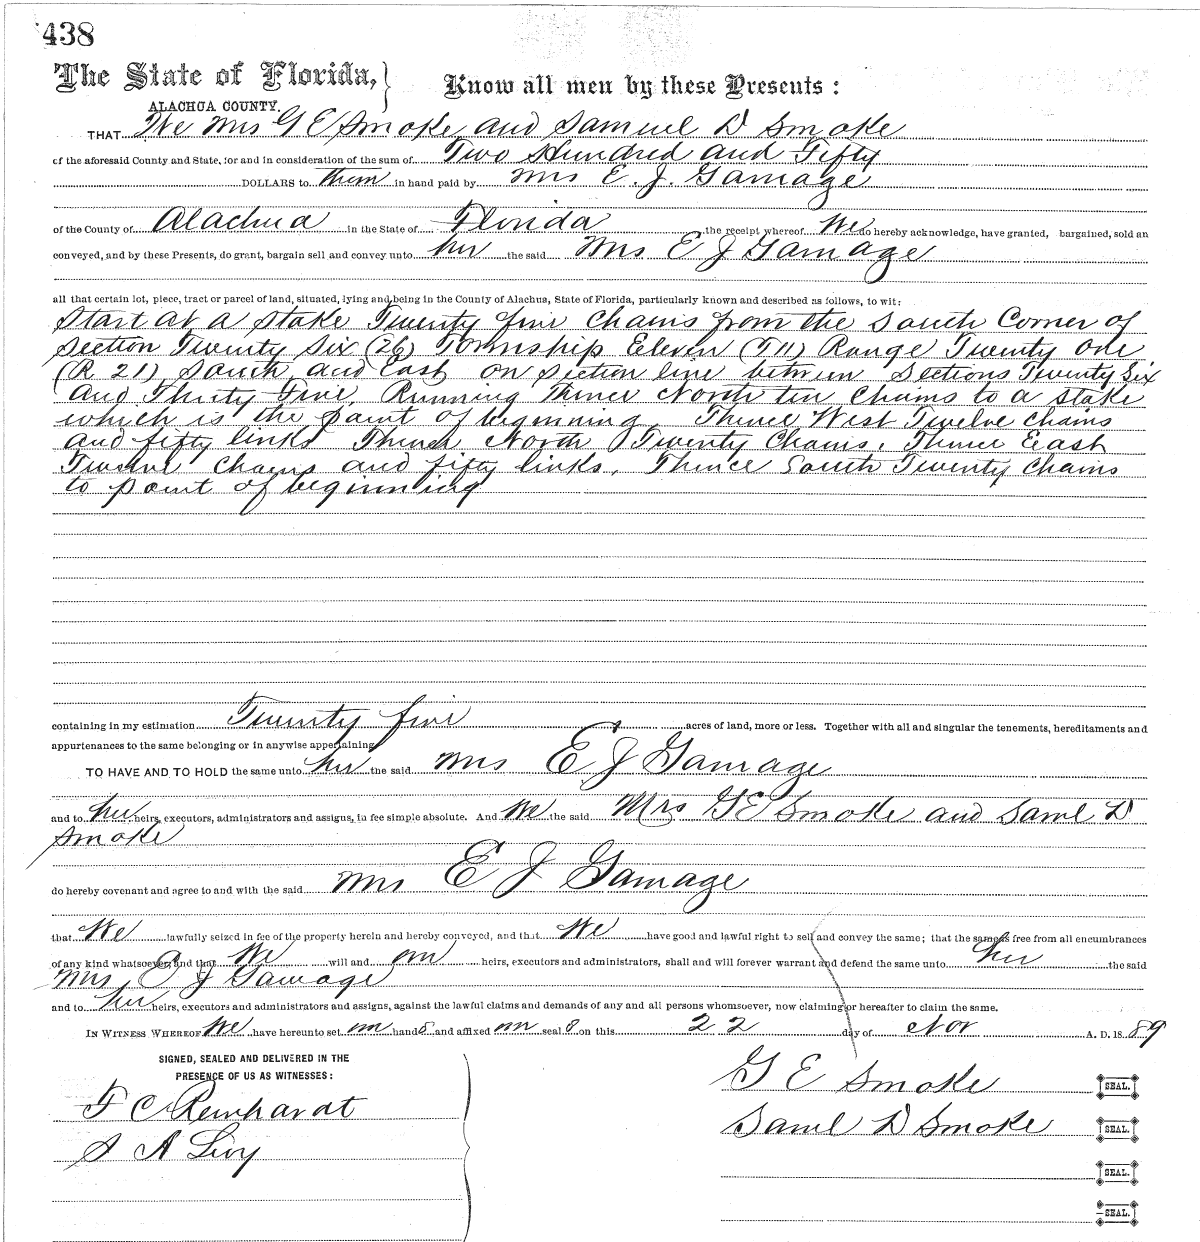 438
The State of Florida,
ALACHUA COUNTY.
Know all men by these Presents:
THAT We Mrs G E Smoke and Samuel D Smoke
of the aforesaid County and State, for and in consideration of the sum of Two Hundred and Fifty
DOLLARS to them in hand paid by Mrs E. J. Gamage
of the County of Alachua in the State of Florida the receipt whereof We do hereby acknowledge, have granted, bargained, sold an
conveyed, and by these Presents, do grant, bargain sell and convey unto her the said Mrs E J Gamage
all that certain lot, piece, tract or parcel of land, situated, lying and being in the County of Alachua, State of Florida, particularly known and described as follows, to wit:
Start at a stake Twenty five Chains from the South Corner of
Section Twenty Six (26) Township Eleven (T11) Range Twenty one
(R 21) South and East on Section line between Sections Twenty Six
and Thirty Five, Running Thence North ten Chains to a stake
which is the point of beginning Thence West Twelve chains
and fifty links Thence North Twenty Chains, Thence East
Twelve Chains and fifty links, Thence South Twenty Chains
to point of beginning
containing in my estimation Twenty five acres of land, more or less. Together with all and singular the tenements, hereditaments and
appurtenances to the same belonging or in anywise appertaining
TO HAVE AND TO HOLD the same unto her the said Mrs E J Gamage
and to her heirs, executors, administrators and assigns, in fee simple absolute. And We the said Mrs G E Smoke and Saml D
Smoke
do hereby covenant and agree to and with the said Mrs E J Gamage
that We lawfully seized in fee of the property herein and hereby conveyed, and that We have good and lawful right to sell and convey the same; that the same is free from all encumbrances
of any kind whatsoever, and that We will and our heirs, executors and administrators, shall and will forever warrant and defend the same unto her the said
Mrs E J Gamage
and to her heirs, executors and administrators and assigns, against the lawful claims and demands of any and all persons whomsoever, now claiming or hereafter to claim the same.
IN WITNESS WHEREOF We have hereunto set our hands and affixed our seals on this 22 day of Nov A. D. 18 89
SIGNED, SEALED AND DELIVERED IN THE
PRESENCE OF US AS WITNESSES:
F C Reinhardt
S A Livy
G E Smoke SEAL.
Saml D Smoke SEAL.
SEAL.
SEAL.